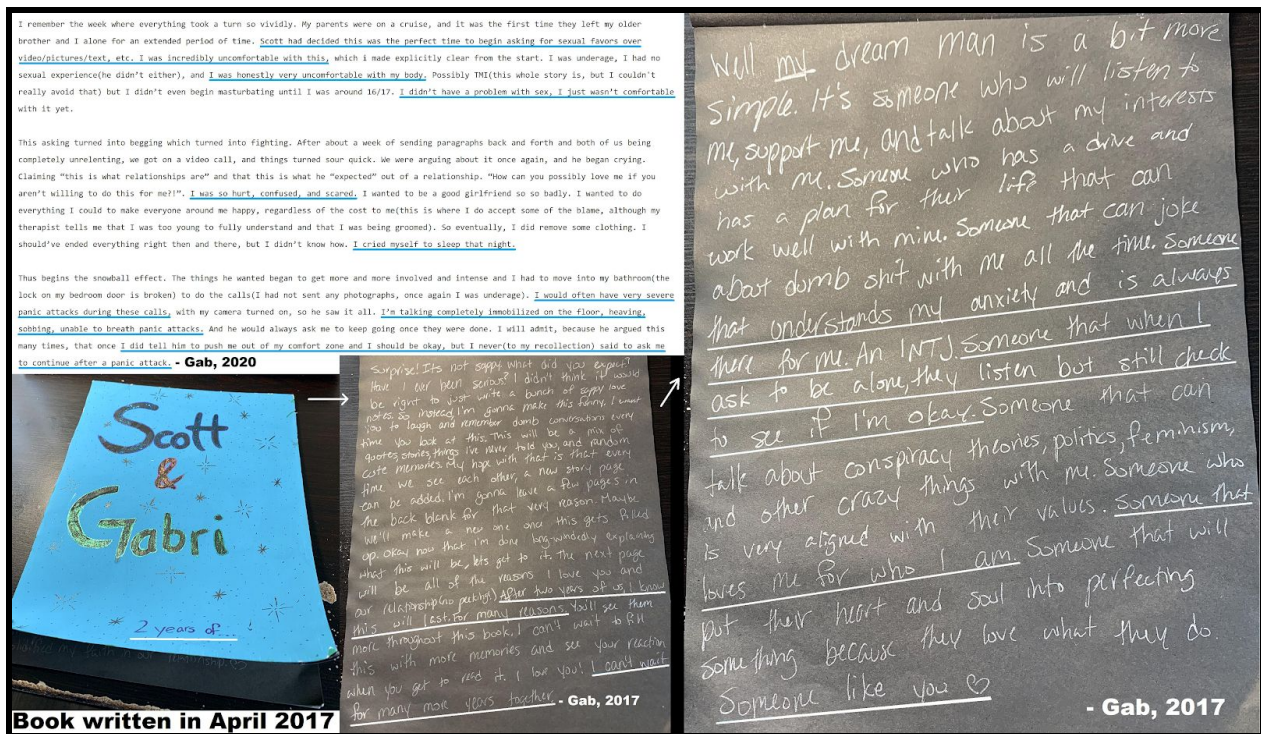 I remember the week where everything took a turn so vividly. My parents were on a cruise, and it was the first time they left my older
brother and I alone for an extended period of time. Scott had decided this was the perfect time to begin asking for sexual favors over
video/pictures/text, etc. I was incredibly uncomfortable with this, which i made explicitly clear from the start. I was underage, I had no
sexual experience(he didn't either), and I was honestly very uncomfortable with my body. Possibly TMI(this whole story is, but I couldn't
really avoid that) but I didn't even begin masturbating until I was around 16/17. I didn't have a problem with sex, I just wasn't comfortable
with it yet.
This asking turned into begging which turned into fighting. After about a week of sending paragraphs back and forth and both of us being
completely unrelenting, we got on a video call, and things turned sour quick. We were arguing about it once again, and he began crying.
Claiming "this is what relationships are" and that this is what he "expected" out of a relationship. "How can you possibly love me if you
aren't willing to do this for me?!". I was so hurt, confused, and scared. I wanted to be a good girlfriend so so badly. I wanted to do
everything I could to make everyone around me happy, regardless of the cost to me(this is where I do accept some of the blame, although my
therapist tells me that I was too young to fully understand and that I was being groomed). So eventually, I did remove some clothing. I
should've ended everything right then and there, but I didn't know how. I cried myself to sleep that night.
Thus begins the snowball effect. The things he wanted began to get more and more involved and intense and I had to move into my bathroom(the
lock on my bedroom door is broken) to do the calls(I had not sent any photographs, once again I was underage). I would often have very severe
panic attacks during these calls, with my camera turned on, so he saw it all. I'm talking completely immobilized on the floor, heaving,
sobbing, unable to breath panic attacks. And he would always ask me to keep going once they were done. I will admit, because he argued this
many times, that once I did tell him to push me out of my comfort zone and I should be okay, but I never(to my recollection) said to ask me
to continue after a panic attack. - Gab, 2020
Scott
&
Gabri
2 years of...
Book written in April 2017
Surprise! Its not sappy. What did you expect?
Have I ever been serious? I didn't think it would
be right to just write a bunch of sappy love
notes. So instead, I'm gonna make this funny. I want
you to laugh and remember dumb conversations every
time you look at this. This will be a mix of
quotes, stories, things I've never told you, and random
cute memories. My hope with that is that every
time we see each other, a new story page
can be added. I'm gonna leave a few pages in
the back blank for that very reason. Maybe
we'll make a new one once this gets filled
up. Okay now that I'm done long-windedly explaining
what this will be, lets get to it. The next page
will be all of the reasons I love you and
our relationship(no peeking!) After two years of us, I know
this will last. For many reasons. You'll see them
more throughout this book. I can't wait to fill
this with more memories and see your reaction
when you get to read it. I love you! I can't wait
for many more years together. - Gab, 2017
Well my dream man is a bit more
simple. It's someone who will listen to
me, support me, and talk about my interests
with me. Someone who has a drive and
has a plan for their life that can
work well with mine. Someone that can joke
about dumb shit with me all the time. Someone
that understands my anxiety and is always
there for me. An INTJ. Someone that when I
ask to be alone, they listen but still check
to see if I'm okay. Someone that can
talk about conspiracy theories, politics, feminism,
and other crazy things with me. Someone who
is very aligned with their values. Someone that
loves me for who I am. Someone that will
put their heart and soul into perfecting
something because they love what they do.
Someone like you ♡
- Gab, 2017